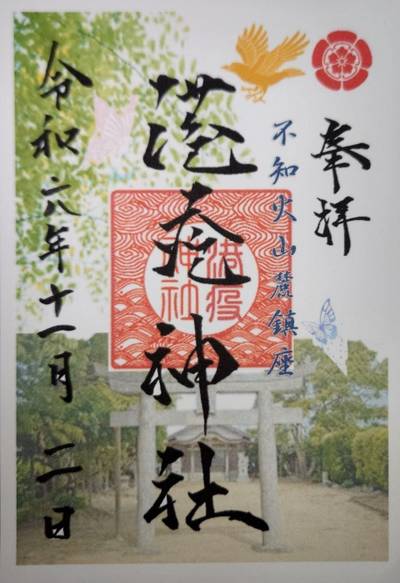 奉拝
不知火山麓鎮座
港疫神社
港疫
神社
令和六年十一月二日